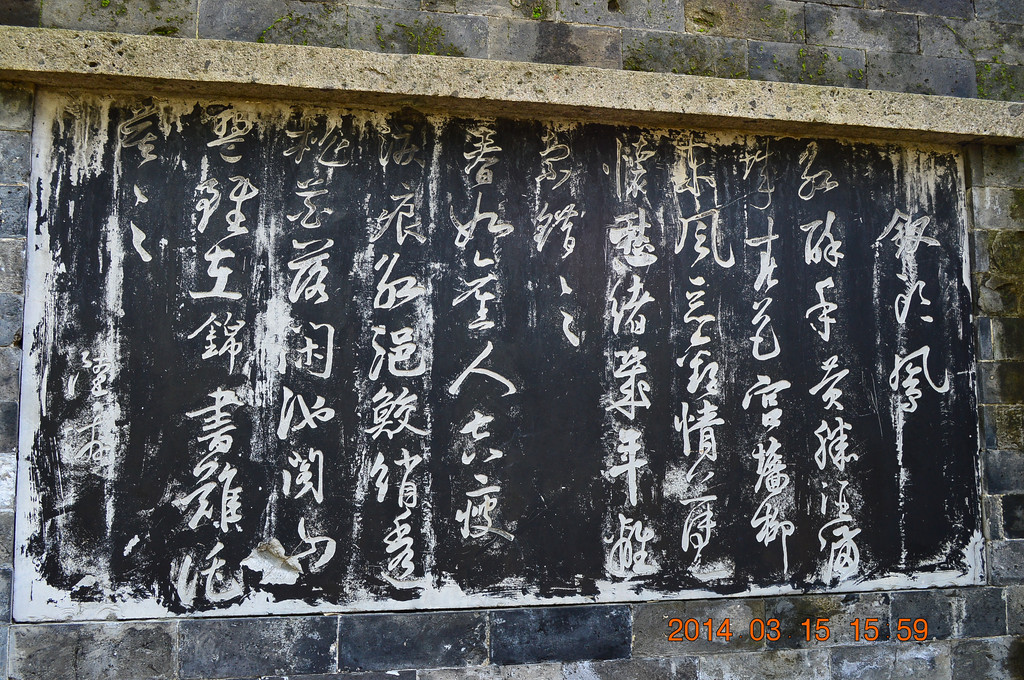 釵頭鳳
紅酥手黃縢酒滿
城春色宮牆柳
東風惡歡情薄一
懷愁緒幾年離
索錯〻〻
春如舊人空瘦
淚痕紅浥鮫綃透
桃花落閑池閣山
盟雖在錦書難託
莫〻〻
陸游
2014 03 15 15 59